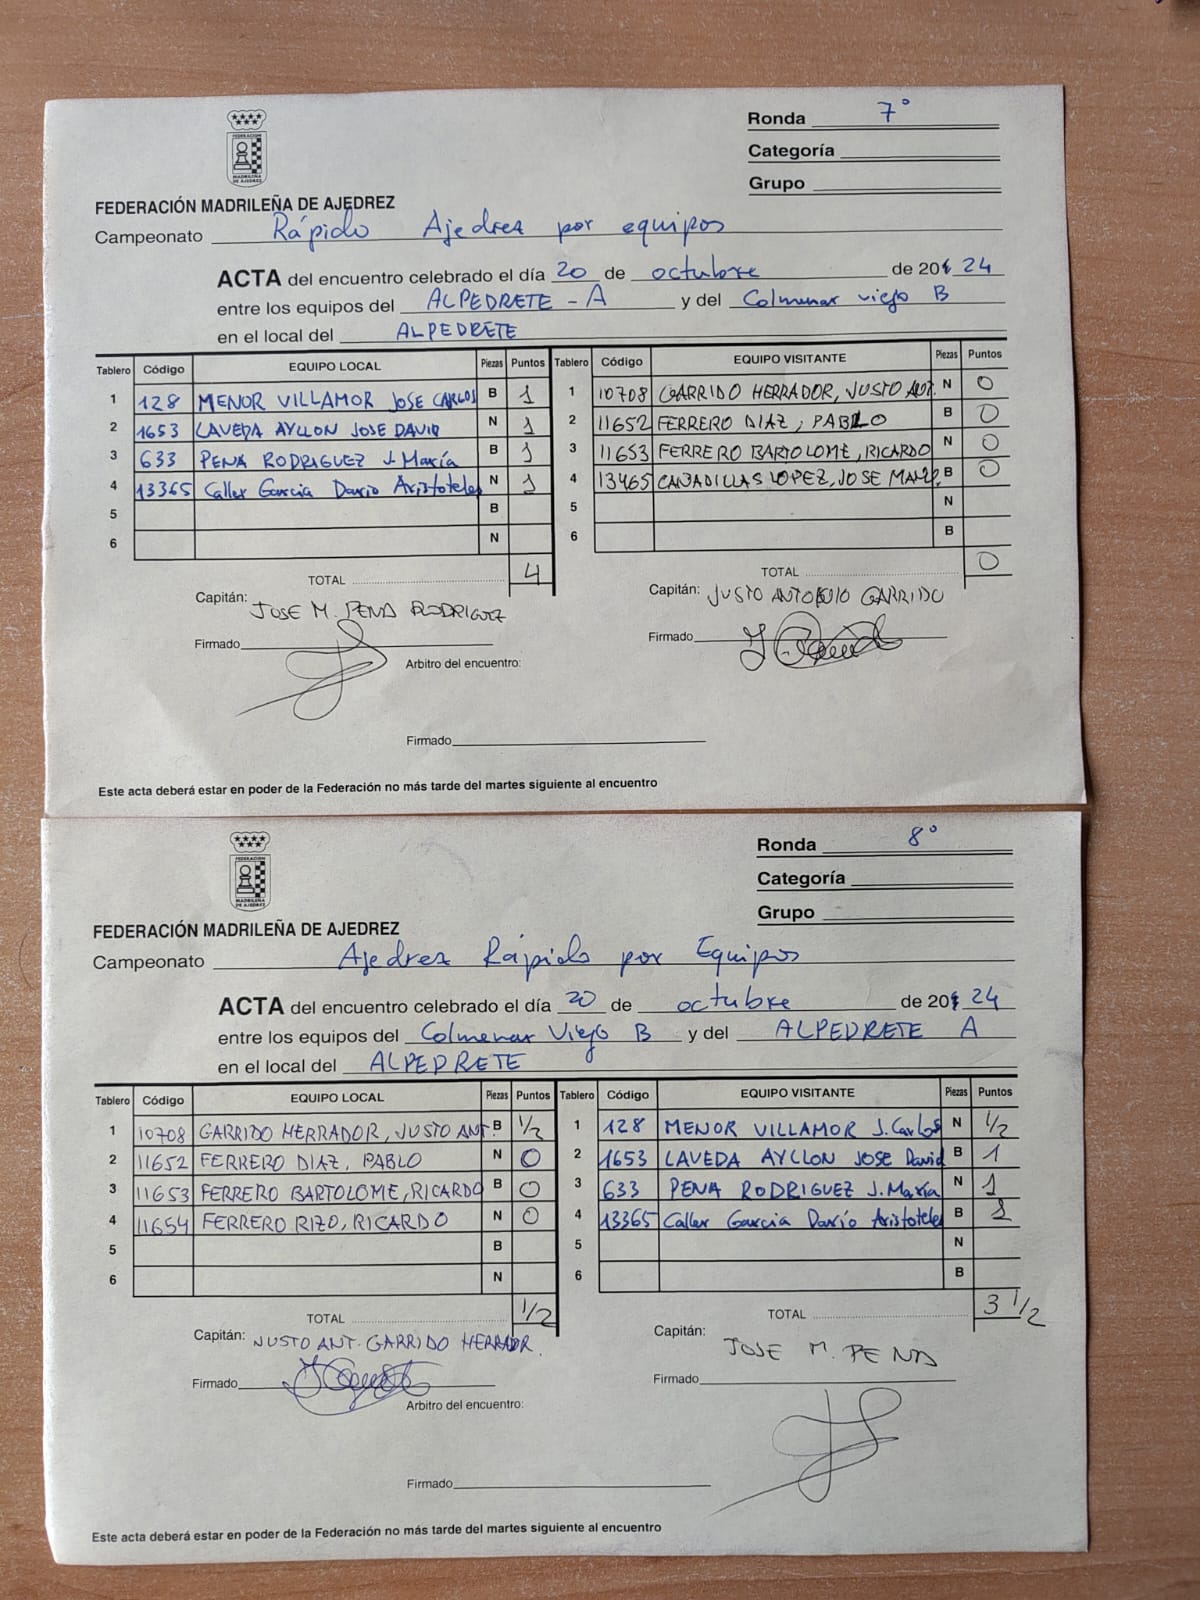 FEDERACIÓN
MADRILEÑA
DE AJEDREZ
Ronda 7º
Categoría
Grupo
FEDERACIÓN MADRILEÑA DE AJEDREZ
Campeonato Rápido Ajedrez por equipos
ACTA del encuentro celebrado el día 20 de octubre de 20 24
entre los equipos del ALPEDRETE - A y del Colmenar viejo B
en el local del ALPEDRETE
Tablero Código EQUIPO LOCAL Piezas Puntos Tablero Código EQUIPO VISITANTE Piezas Puntos
1 128 MENOR VILLAMOR JOSE CARLOS B 1 1 10708 GARRIDO HERRADOR, JUSTO ANT. N 0
2 1653 LAVEDA AYLLON JOSE DAVID N 1 2 11652 FERRERO DIAZ, PABLO B 0
3 633 PENA RODRIGUEZ J. María B 1 3 11653 FERRERO BARTOLOME, RICARDO N 0
4 13365 Caller Garcia Darío Aristoteles N 1 4 13465 CAÑADILLAS LOPEZ, JOSE B 0
5 B 5 N
6 N 6 B
TOTAL 4 TOTAL 0
Capitán: JOSE M. PENA RODRIGUEZ Capitán: JUSTO ANTONIO GARRIDO
Firmado Firmado
Arbitro del encuentro:
Firmado
Este acta deberá estar en poder de la Federación no más tarde del martes siguiente al encuentro
FEDERACIÓN
MADRILEÑA
DE AJEDREZ
Ronda 8º
Categoría
Grupo
FEDERACIÓN MADRILEÑA DE AJEDREZ
Campeonato Ajedrez Rápido por Equipos
ACTA del encuentro celebrado el día 20 de octubre de 20 24
entre los equipos del Colmenar Viejo B y del ALPEDRETE A
en el local del ALPEDRETE
Tablero Código EQUIPO LOCAL Piezas Puntos Tablero Código EQUIPO VISITANTE Piezas Puntos
1 10708 GARRIDO HERRADOR, JUSTO ANT. B 1/2 1 128 MENOR VILLAMOR J. Carlos N 1/2
2 11652 FERRERO DIAZ, PABLO N 0 2 1653 LAVEDA AYLLON JOSE David B 1
3 11653 FERRERO BARTOLOME, RICARDO B 0 3 633 PENA RODRIGUEZ J. María N 1
4 11654 FERRERO RIZO, RICARDO N 0 4 13365 Caller Garcia Darío Aristoteles B 1
5 B 5 N
6 N 6 B
TOTAL 1/2 TOTAL 3 1/2
Capitán: JUSTO ANT. GARRIDO HERRADOR. Capitán: JOSE M. PENA
Firmado Firmado
Arbitro del encuentro:
Firmado
Este acta deberá estar en poder de la Federación no más tarde del martes siguiente al encuentro